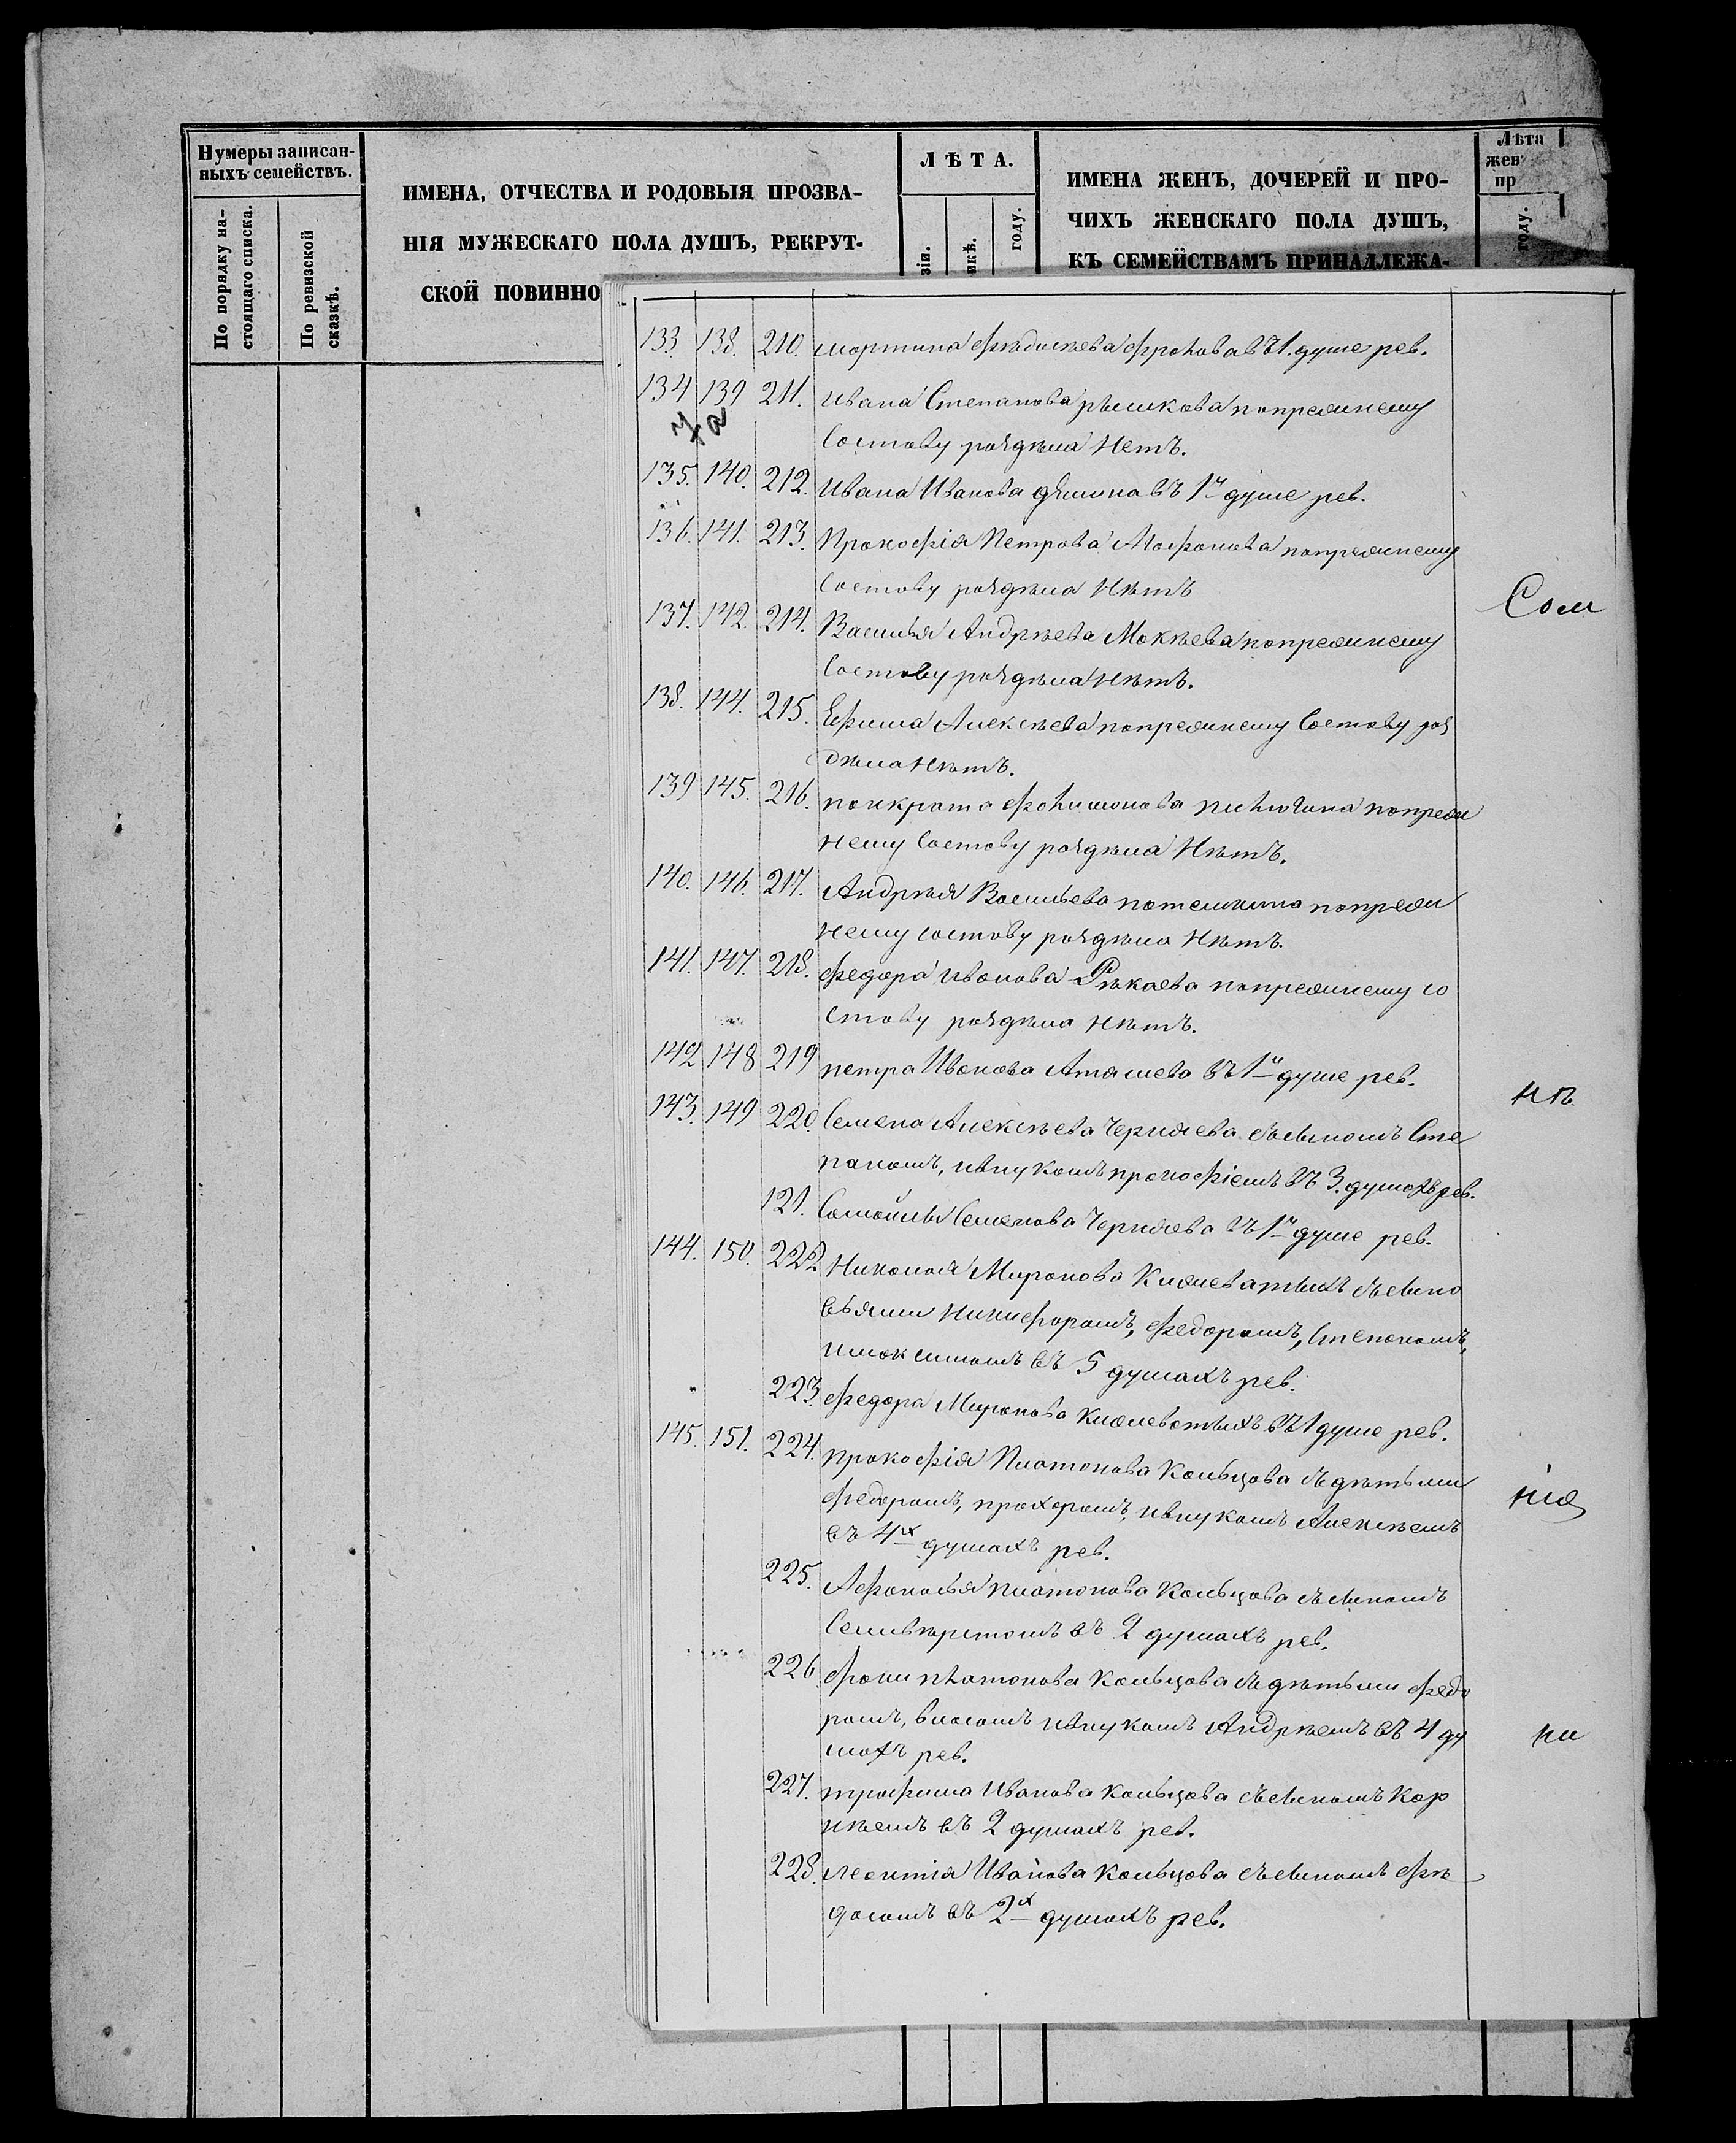 Нумеры записан-
ныхъ семействъ.
По порядку на-
стоящаго списка.
По ревизской
сказкѣ.
ИМЕНА, ОТЧЕСТВА И РОДОВЫЯ ПРОЗВА-
НІЯ МУЖЕСКАГО ПОЛА ДУШЪ, РЕКРУТ-
СКОЙ ПОВИННО
ЛѢТА.
зіи.
икѣ.
году.
ИМЕНА ЖЕНЪ, ДОЧЕРЕЙ И ПРО-
ЧИХЪ ЖЕНСКАГО ПОЛА ДУШЪ,
КЪ СЕМЕЙСТВАМЪ ПРИНАДЛЕЖА-
Лѣта
жен
пр
году.
133. 138. 210. мартина Фролова въ 1. душе рев.
134 139 211. Ивана Степанова попрежнему
Составу раздѣла нетъ.
135. 140. 212. Ивана Иванова въ 1й душе рев.
136. 141. 213. Прокофія Петрова попрежнему
Составу раздѣла нѣтъ
137. 142. 214. Василья Андрѣева Мокѣева попрежнему
Составу раздѣла нѣтъ.
138. 144. 215. Ефима Алексѣева попрежнему Составу раз
дѣла нѣтъ.
139 145. 216. панкрата филимонова пилюгина попреж
нему Составу раздѣла нѣтъ.
140. 146. 217. Андрѣя Васильева потемкина попреж
нему составу раздѣла нѣтъ.
141. 147. 218. федора иванова Рѣкаева попрежнему со
ставу раздѣла нѣтъ.
142 148 219 петра Иванова Аташева въ 1й душе рев.
143. 149 220. Семена Алексѣева Черняева съ сыномъ Сте
паномъ, ивнукомъ прокофіемъ въ 3. душахъ рев.
121. Самойлы Семенова Черняева въ 1й душе рев.
144. 150. 222 Николая Миронова Кислеватыхъ съ сыно
вьями никифоромъ, федоромъ, Степаномъ,
имаксимомъ въ 5 душахъ рев.
223. федора Миронова Кислеватыхъ въ 1 душе рев.
145. 151. 224. прокофія Платонова Кольцова съ дѣтьми
федоромъ, прохоромъ, ивнукомъ Алексѣемъ
въ 4х душахъ рев.
225. Афанасья платонова Кольцова съ сыномъ
Селиверстомъ въ 2 душахъ рев.
226 фоки платонова Кольцова съ дѣтьми федо
ромъ, власомъ ивнукомъ Андрѣемъ въ 4 ду
шахъ рев.
227. трофима Иванова Кольцова съ сыномъ Кор
нѣемъ въ 2 душахъ рев.
228. леонтія Иванова Кольцова съ сыномъ фѣ
досомъ въ 2х душахъ рев.